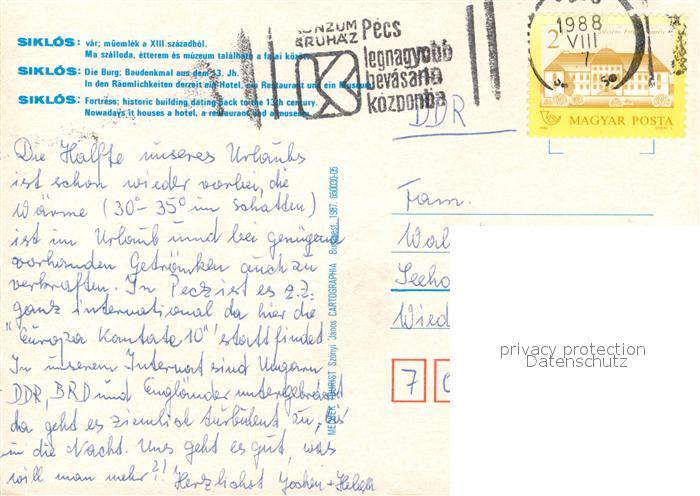 SIKLÓS: vár; műemlék a XIII. századból.
Ma szálloda, étterem és múzeum található a falai közön
SIKLÓS: Die Burg; Baudenkmal aus dem 13. Jh.
In den Räumlichkeiten derzeit ein Hotel, ein Restaurant und ein Museum
SIKLÓS: Fortress; historic building dating back to the 13th century.
Nowadays it houses a hotel, a restaurant and a museum
KONZUM
ÁRUHÁZ
Pécs
legnagyobb
bevásárló
központja
1988
VIII
2
MAGYAR POSTA
DDR
Die Hälfte unseres Urlaubs
ist schon wieder vorbei, die
Wärme (30°-35° im Schatten)
ist im Urlaub und bei genügend
vorhanden Getränken auch zu
verkraften. In Pecz ist es z.Z.
ganz international da hier die
"Europa Kantate 10" stattfindet
In unserem Internat sind Ungarn
DDR, BRD und Engländer untergebracht
da geht es ziemlich turbulent zu, bis
in die Nacht. Uns geht es gut, was
will man mehr?! Herzlichst Jochen + Helga
MEDJEK TOURIST Szönyi János CARTOGRAPHIA Budapest, 1987. 650030-05
Fam.
Wal
Seeho
Wied
7
privacy protection
Datenschutz